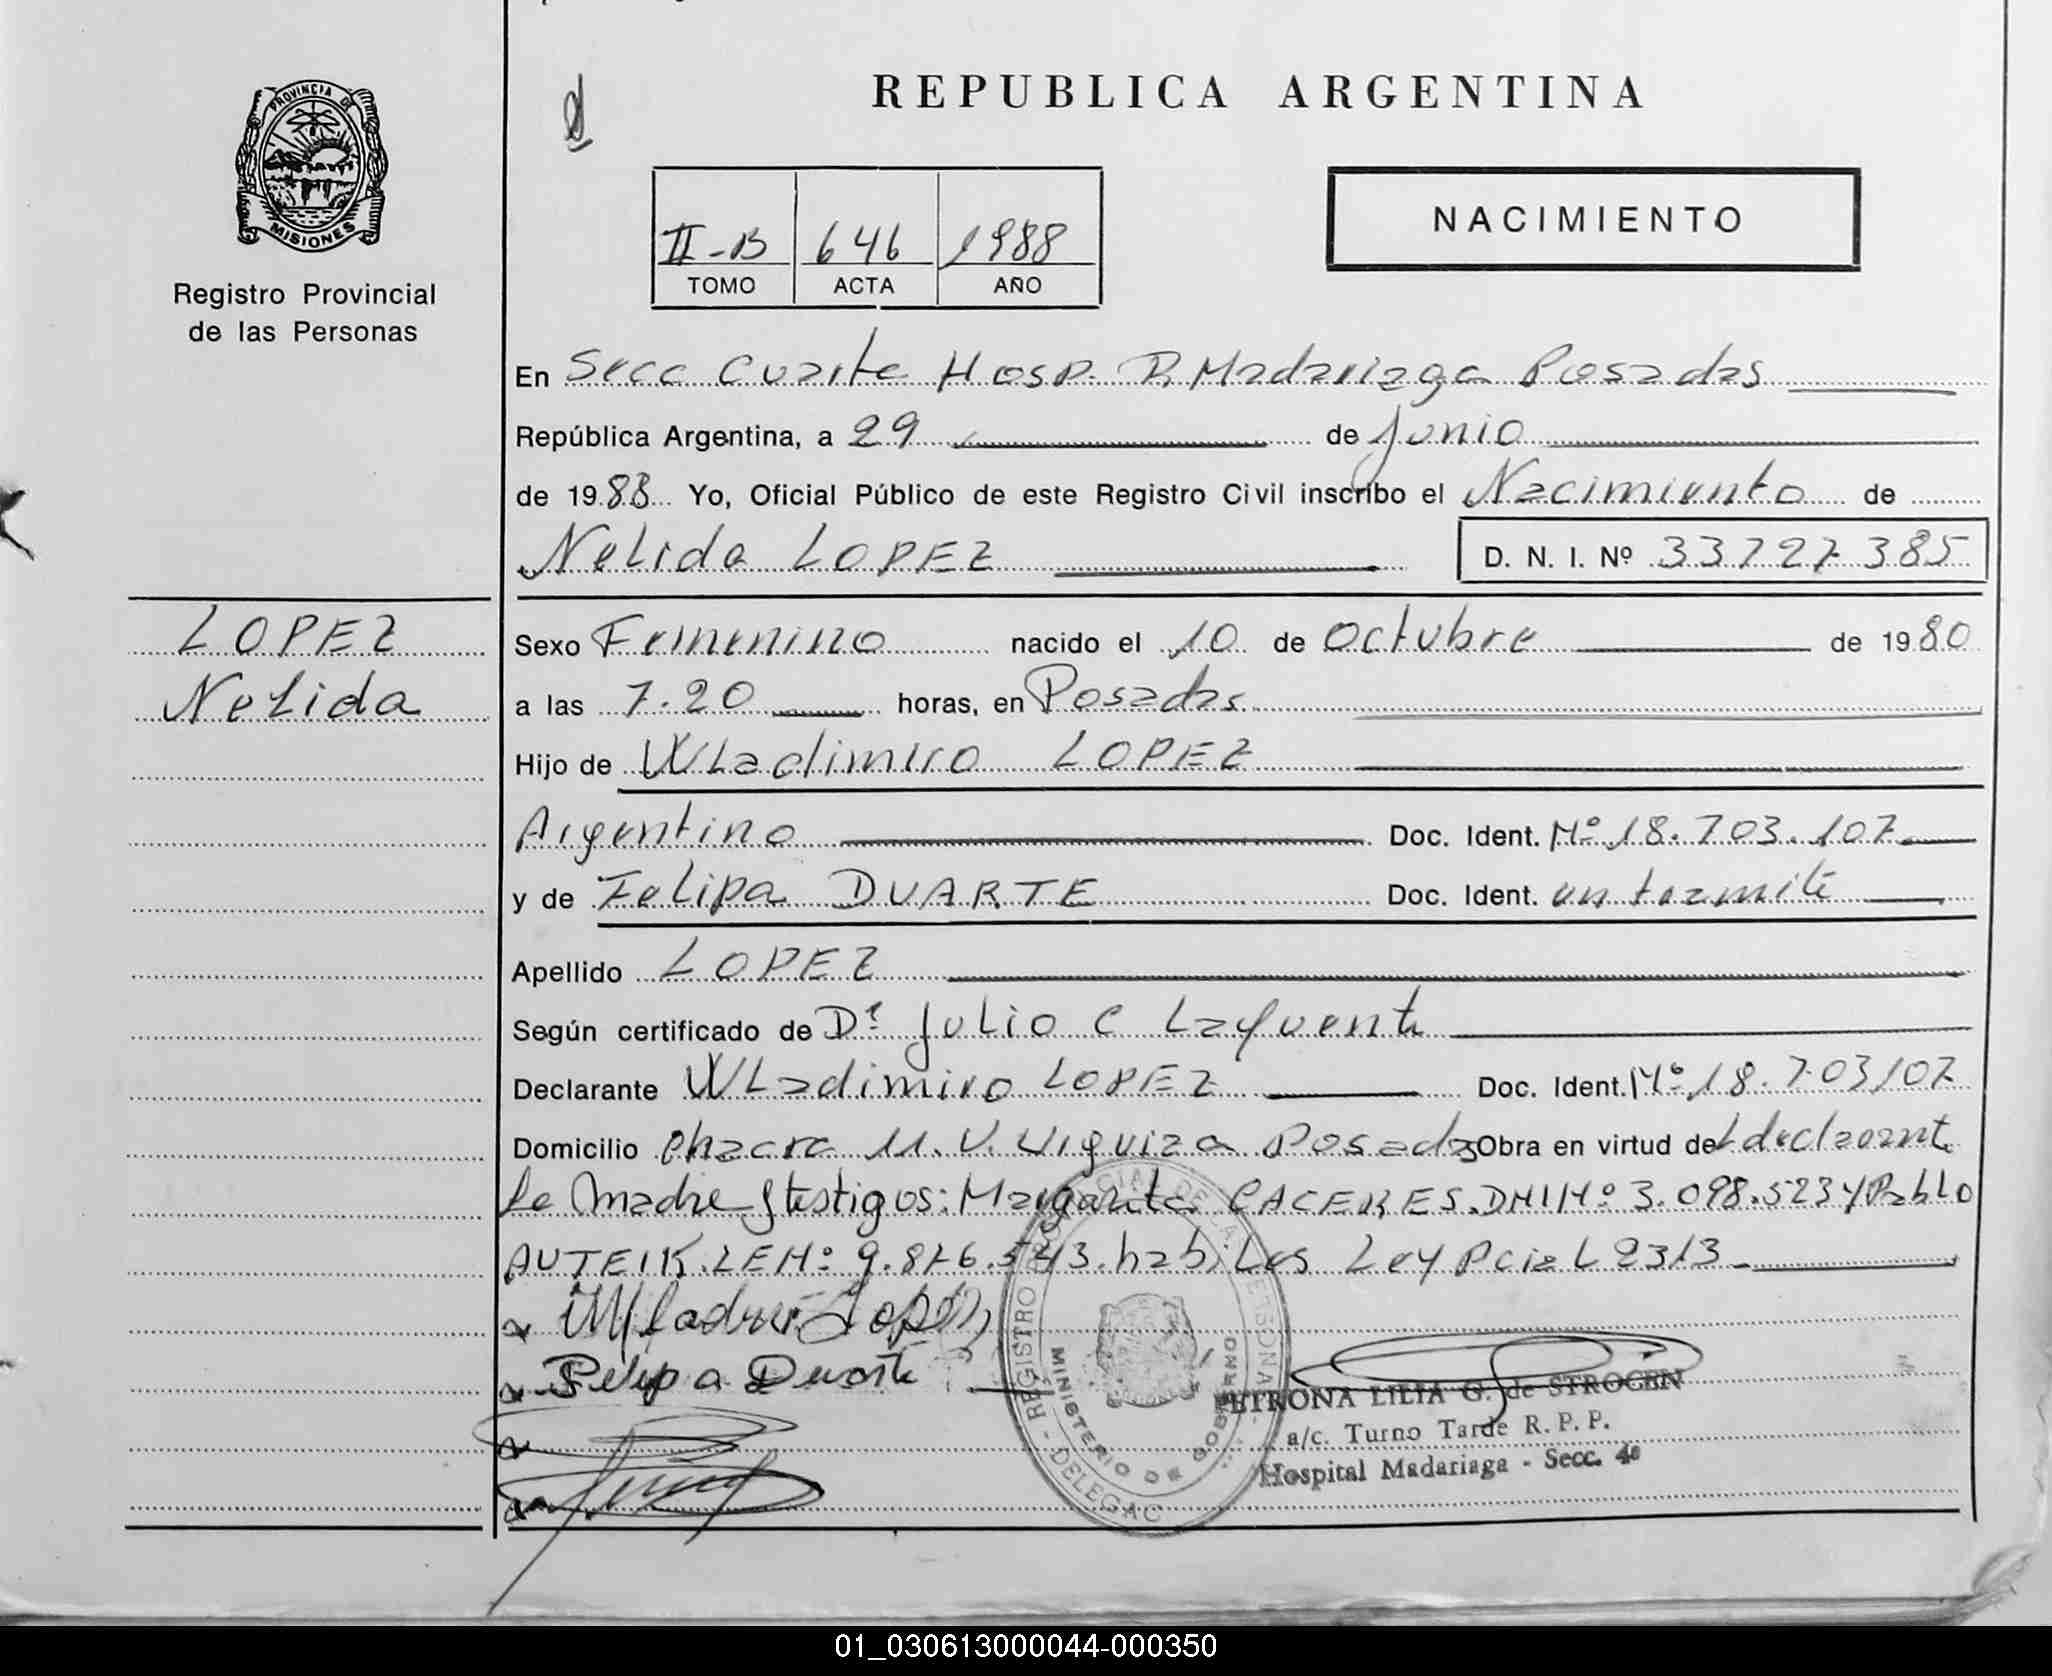 REPUBLICA ARGENTINA
PROVINCIA DE
MISIONES
Registro Provincial
de las Personas
II-B 646 1988
TOMO ACTA AÑO
NACIMIENTO
En Secc Cuarta Hosp. R Madariaga Posadas
República Argentina, a 29 de Junio
de 1988 Yo, Oficial Público de este Registro Civil inscribo el Nacimiento de
Nelida LOPEZ D. N. I. Nº 33727385
LOPEZ
Nelida
Sexo Femenino nacido el 10 de Octubre de 1980
a las 7.20 horas, en Posadas
Hijo de WLadimiro LOPEZ
Argentino Doc. Ident. Nº 18.703.107
y de Felipa DUARTE Doc. Ident. en tramite
Apellido LOPEZ
Según certificado de Dr Julio C Lafuente
Declarante WLadimiro LOPEZ Doc. Ident. Nº 18.703107
Domicilio Chacra 11. V. Urquiza Posadas Obra en virtud de L declarante
La Madre y testigos: Margarita CACERES. DNI Nº 3.098.523 y Pablo
AUTEIK. LE Nº 9.876.543. habiles Ley Pcial 2313
Wladimiro Lopez
Felipa Duarte
REGISTRO PROVINCIAL DE LAS PERSONAS - DELEGAC
MINISTERIO DE GOBIERNO
PETRONA LILIA G. de STROCEN
a/c. Turno Tarde R. P. P.
Hospital Madariaga - Secc. 4ª
01_030613000044-000350